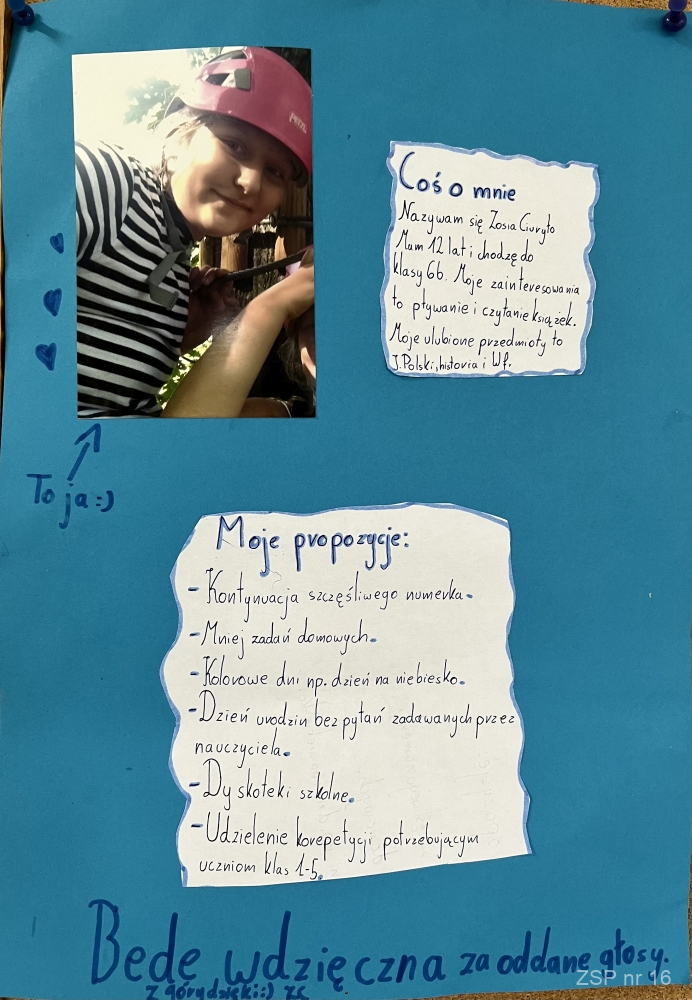 PETZL
Coś o mnie
Nazywam się Zosia Ciuryło
Mam 12 lat i chodzę do
klasy 6b. Moje zainteresowania
to pływanie i czytanie książek.
Moje ulubione przedmioty to
J.Polski, historia i Wf.
To ja :)
Moje propozycje:
- Kontynuacja szczęśliwego numerka.
- Mniej zadań domowych.
- Kolorowe dni np. dzień na niebiesko.
- Dzień urodzin bez pytań zadawanych przez
nauczyciela.
- Dyskoteki szkolne.
- Udzielenie korepetycji potrzebującym
uczniom klas 1-5.
Bede wdzięczna za oddane głosy.
Z góry dzięki :) ZC
ZSP nr 16